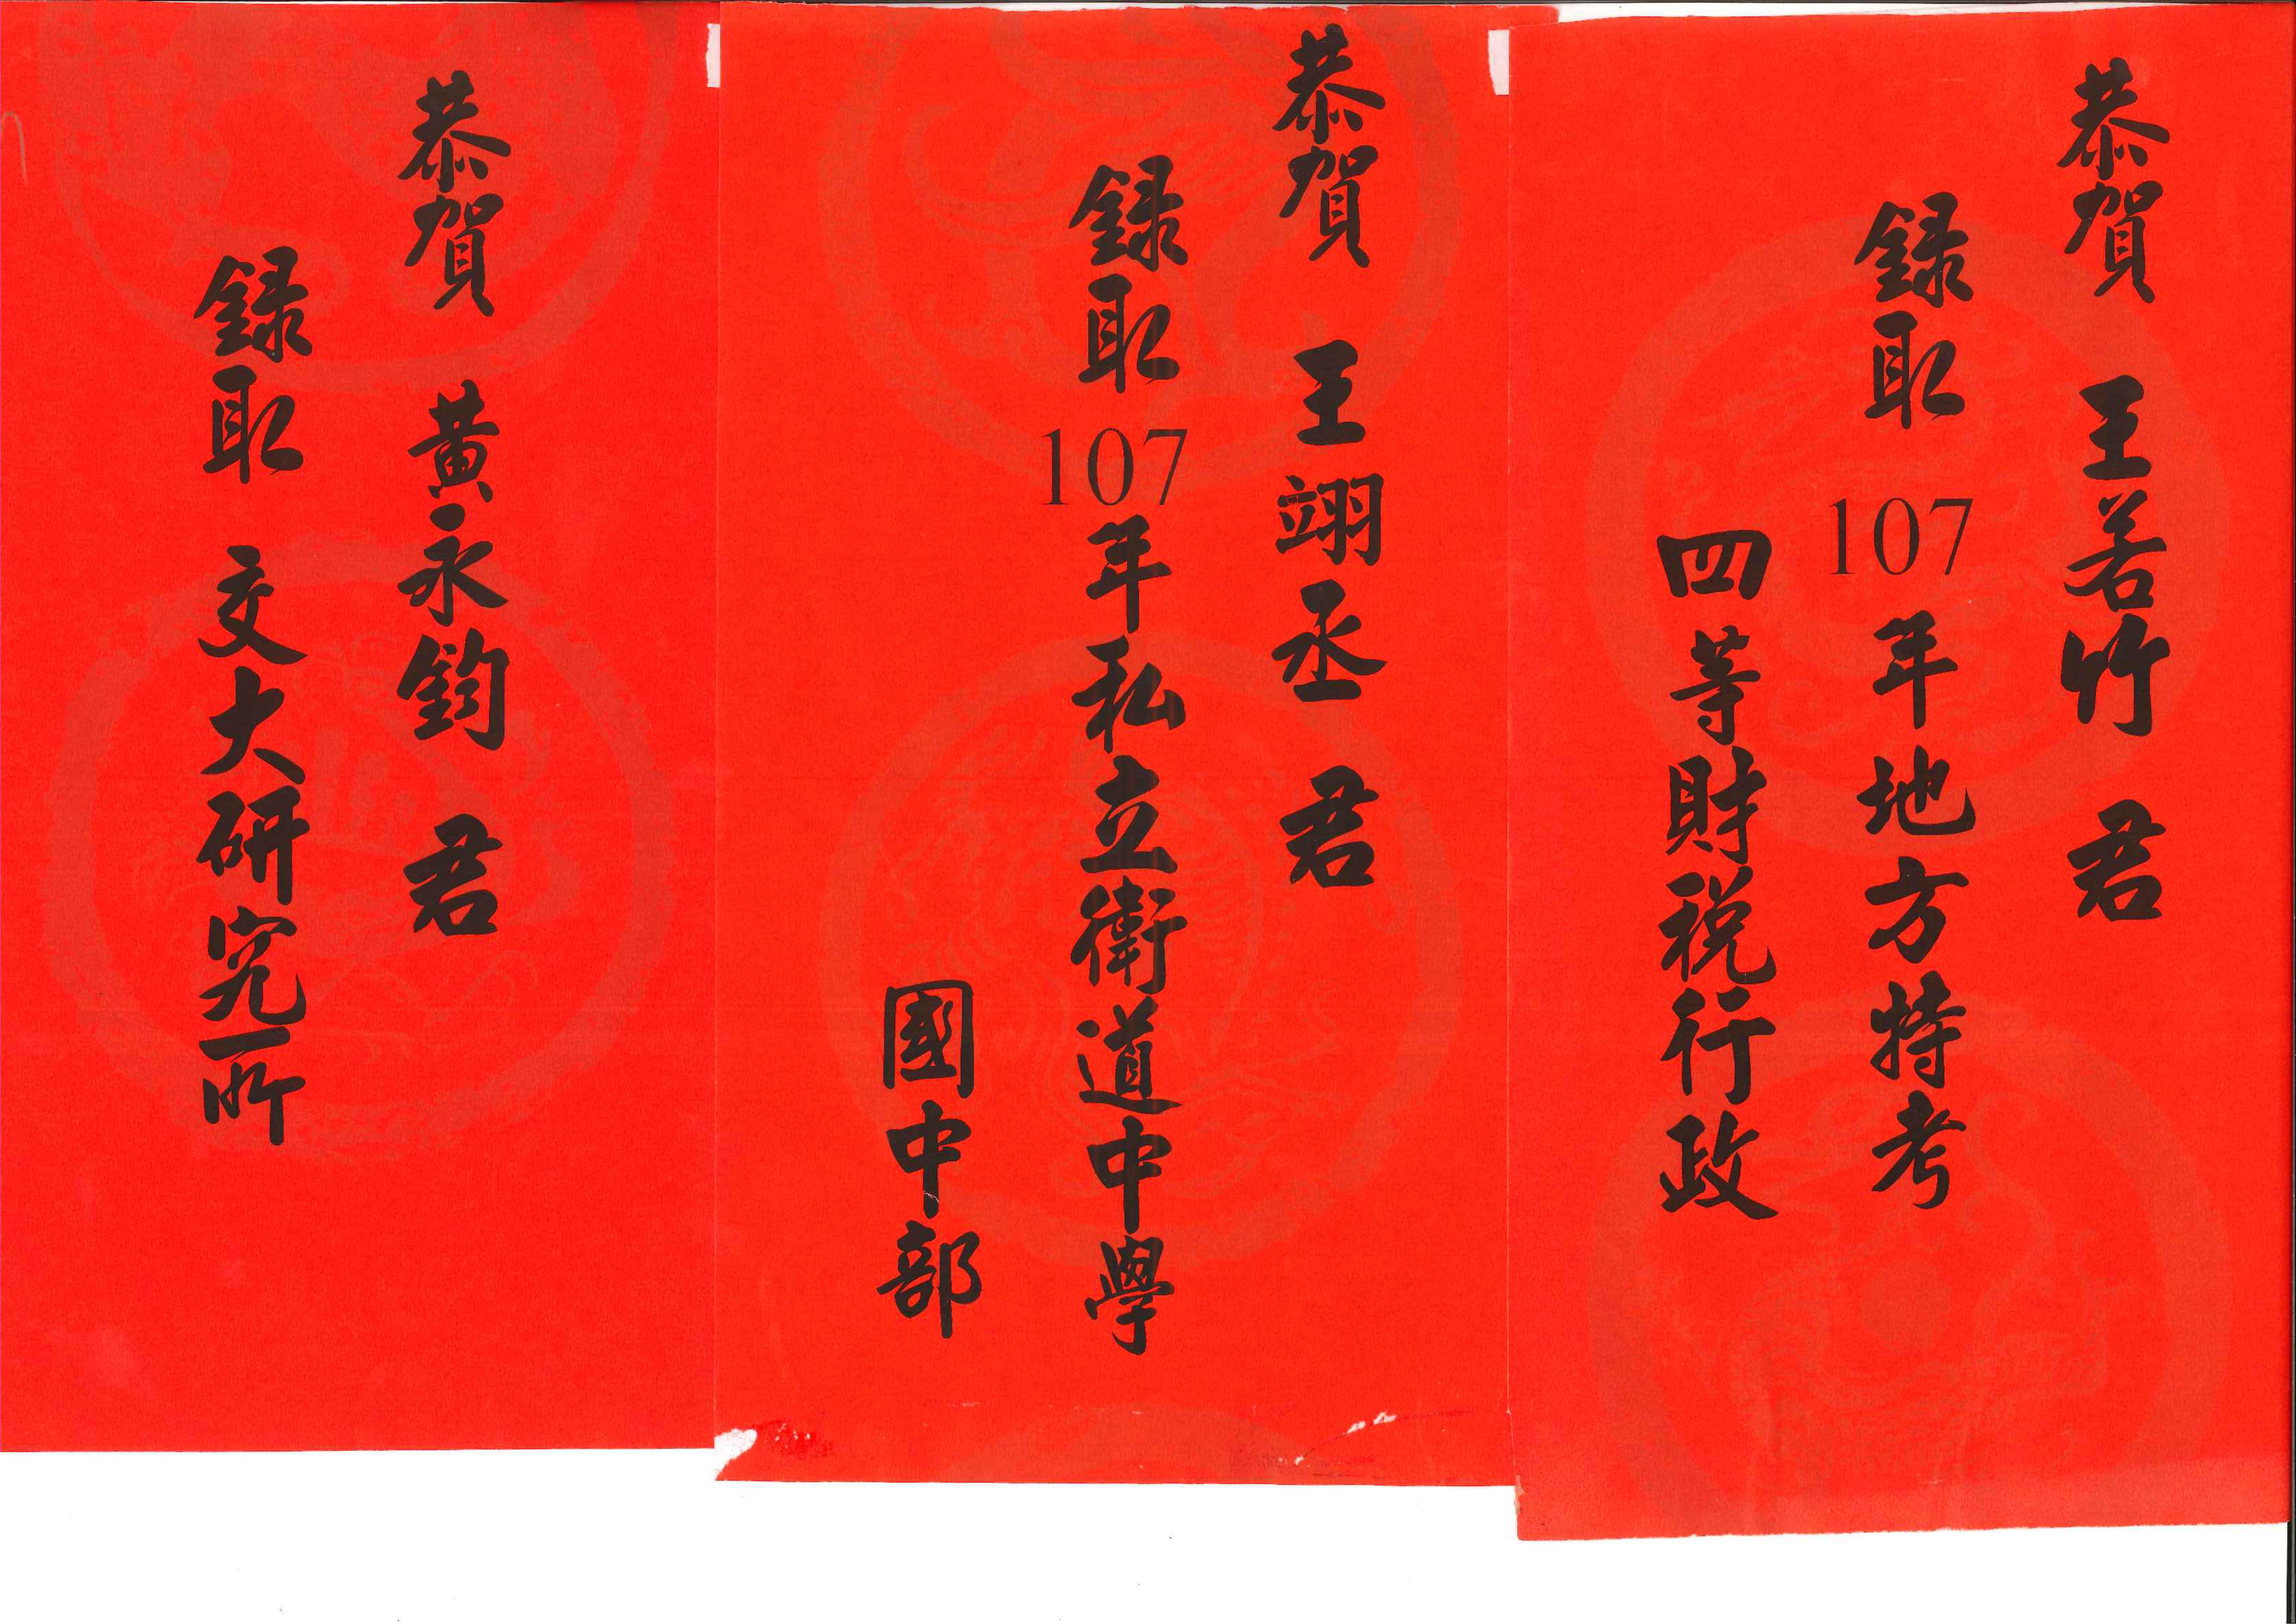 恭賀 王若竹 君
錄取 107 年地方特考
四等財稅行政
恭賀 王翊丞 君
錄取 107 年私立衛道中學
國中部
恭賀 黃永鈞 君
錄取 交大研究所